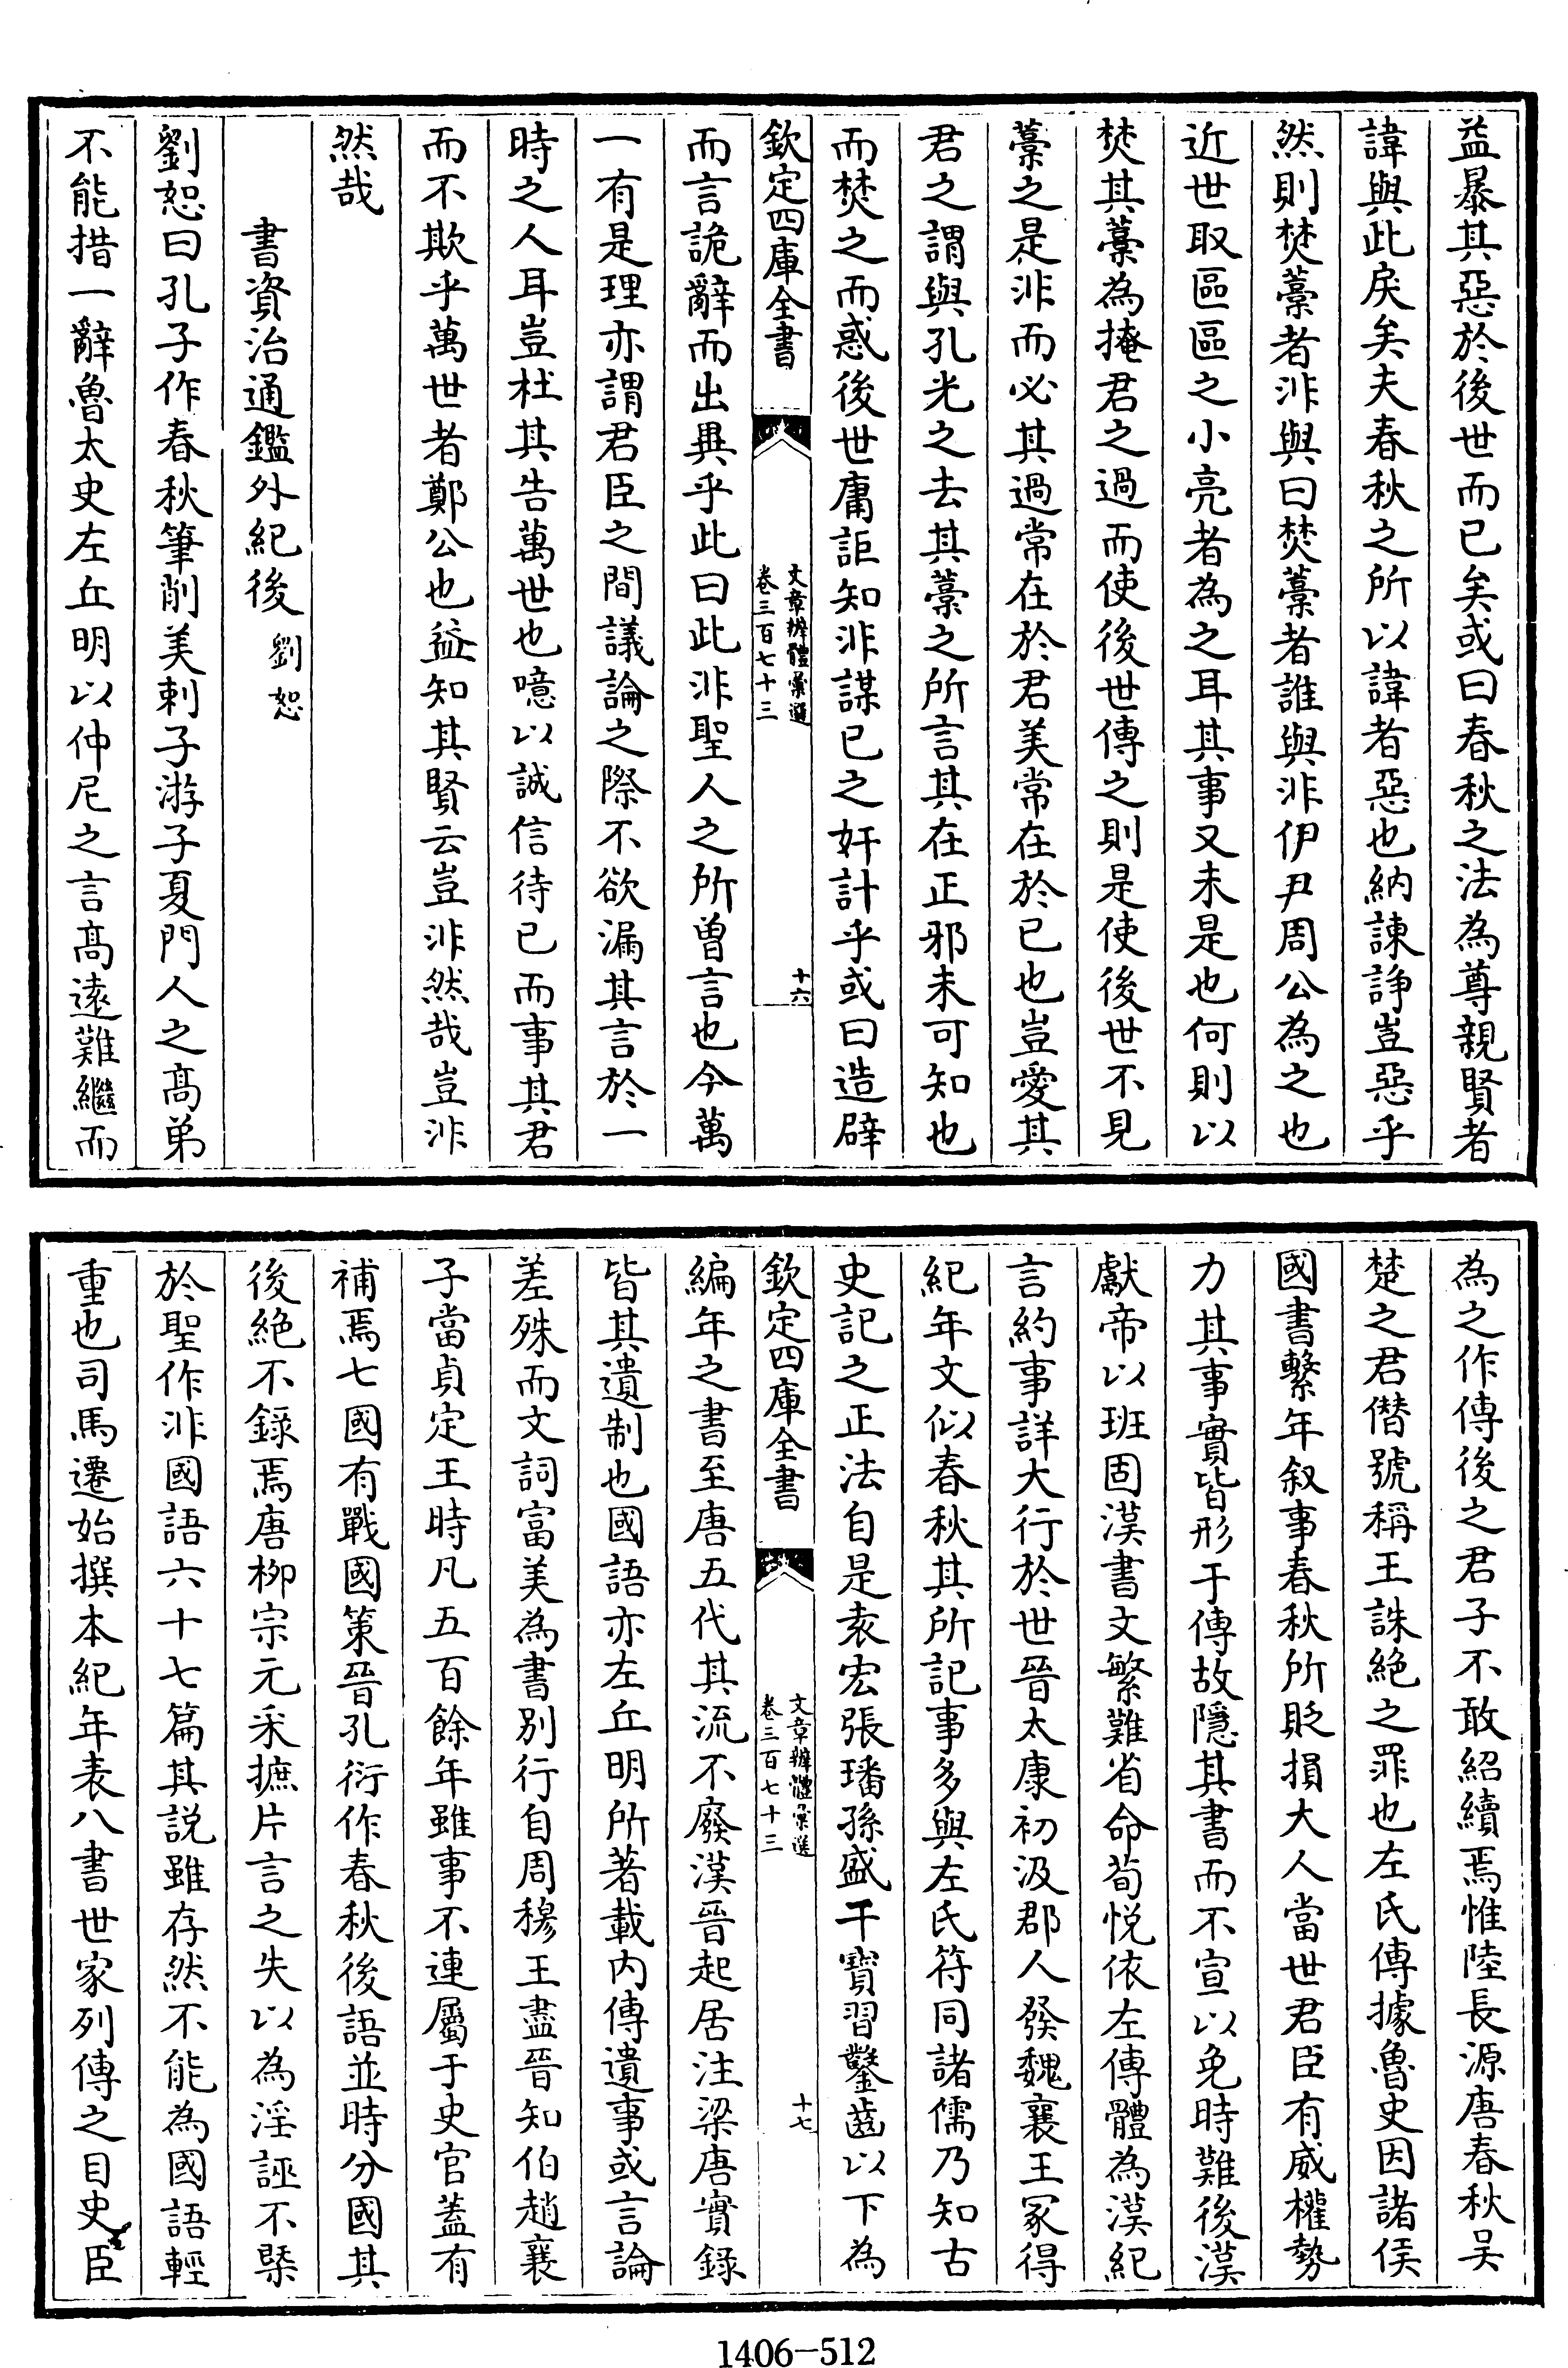 益暴其惡於後世而已矣或曰春秋之法為尊親賢者
諱與此戾矣夫春秋之所以諱者惡也納諫諍豈惡乎
然則焚藁者非與曰焚藁者誰與非伊尹周公為之也
近世取區區之小亮者為之耳其事又未是也何則以
焚其藁為掩君之過而使後世傳之則是使後世不見
藁之是非而必其過常在於君美常在於已也豈愛其
君之謂與孔光之去其藁之所言其在正邪未可知也
而焚之而惑後世庸詎知非謀已之奸計乎或曰造辟
欽定四庫全書
文章辨體彙選
卷三百七十三
十六
而言詭辭而出異乎此曰此非聖人之所曾言也今萬
一有是理亦謂君臣之間議論之際不欲漏其言於一
時之人耳豈杜其告萬世也噫以誠信待已而事其君
而不欺乎萬世者鄭公也益知其賢云豈非然哉豈非
然哉
書資治通鑑外紀後 劉恕
劉恕曰孔子作春秋筆削美刺子游子夏門人之髙弟
不能措一辭魯太史左丘明以仲尼之言髙遠難繼而
為之作傳後之君子不敢紹續焉惟陸長源唐春秋吴
楚之君僭號稱王誅絶之罪也左氏傳據魯史因諸侯
國書繫年叙事春秋所貶損大人當世君臣有威權勢
力其事實皆形于傳故隱其書而不宣以免時難後漢
獻帝以班固漢書文繁難省命荀悦依左傳體為漢紀
言約事詳大行於世晉太康初汲郡人發魏襄王冢得
紀年文似春秋其所記事多與左氏符同諸儒乃知古
史記之正法自是袁宏張璠孫盛干寶習鑿齒以下為
欽定四庫全書
文章辨體彙選
卷三百七十三
十七
編年之書至唐五代其流不廢漢晉起居注梁唐實錄
皆其遺制也國語亦左丘明所著載内傳遺事或言論
差殊而文詞富美為書别行自周穆王盡晉知伯趙襄
子當貞定王時凡五百餘年雖事不連屬于史官蓋有
補焉七國有戰國策晉孔衍作春秋後語並時分國其
後絶不錄焉唐柳宗元采摭片言之失以為淫誣不槩
於聖作非國語六十七篇其説雖存然不能為國語輕
重也司馬遷始撰本紀年表八書世家列傳之目史臣
1406-512